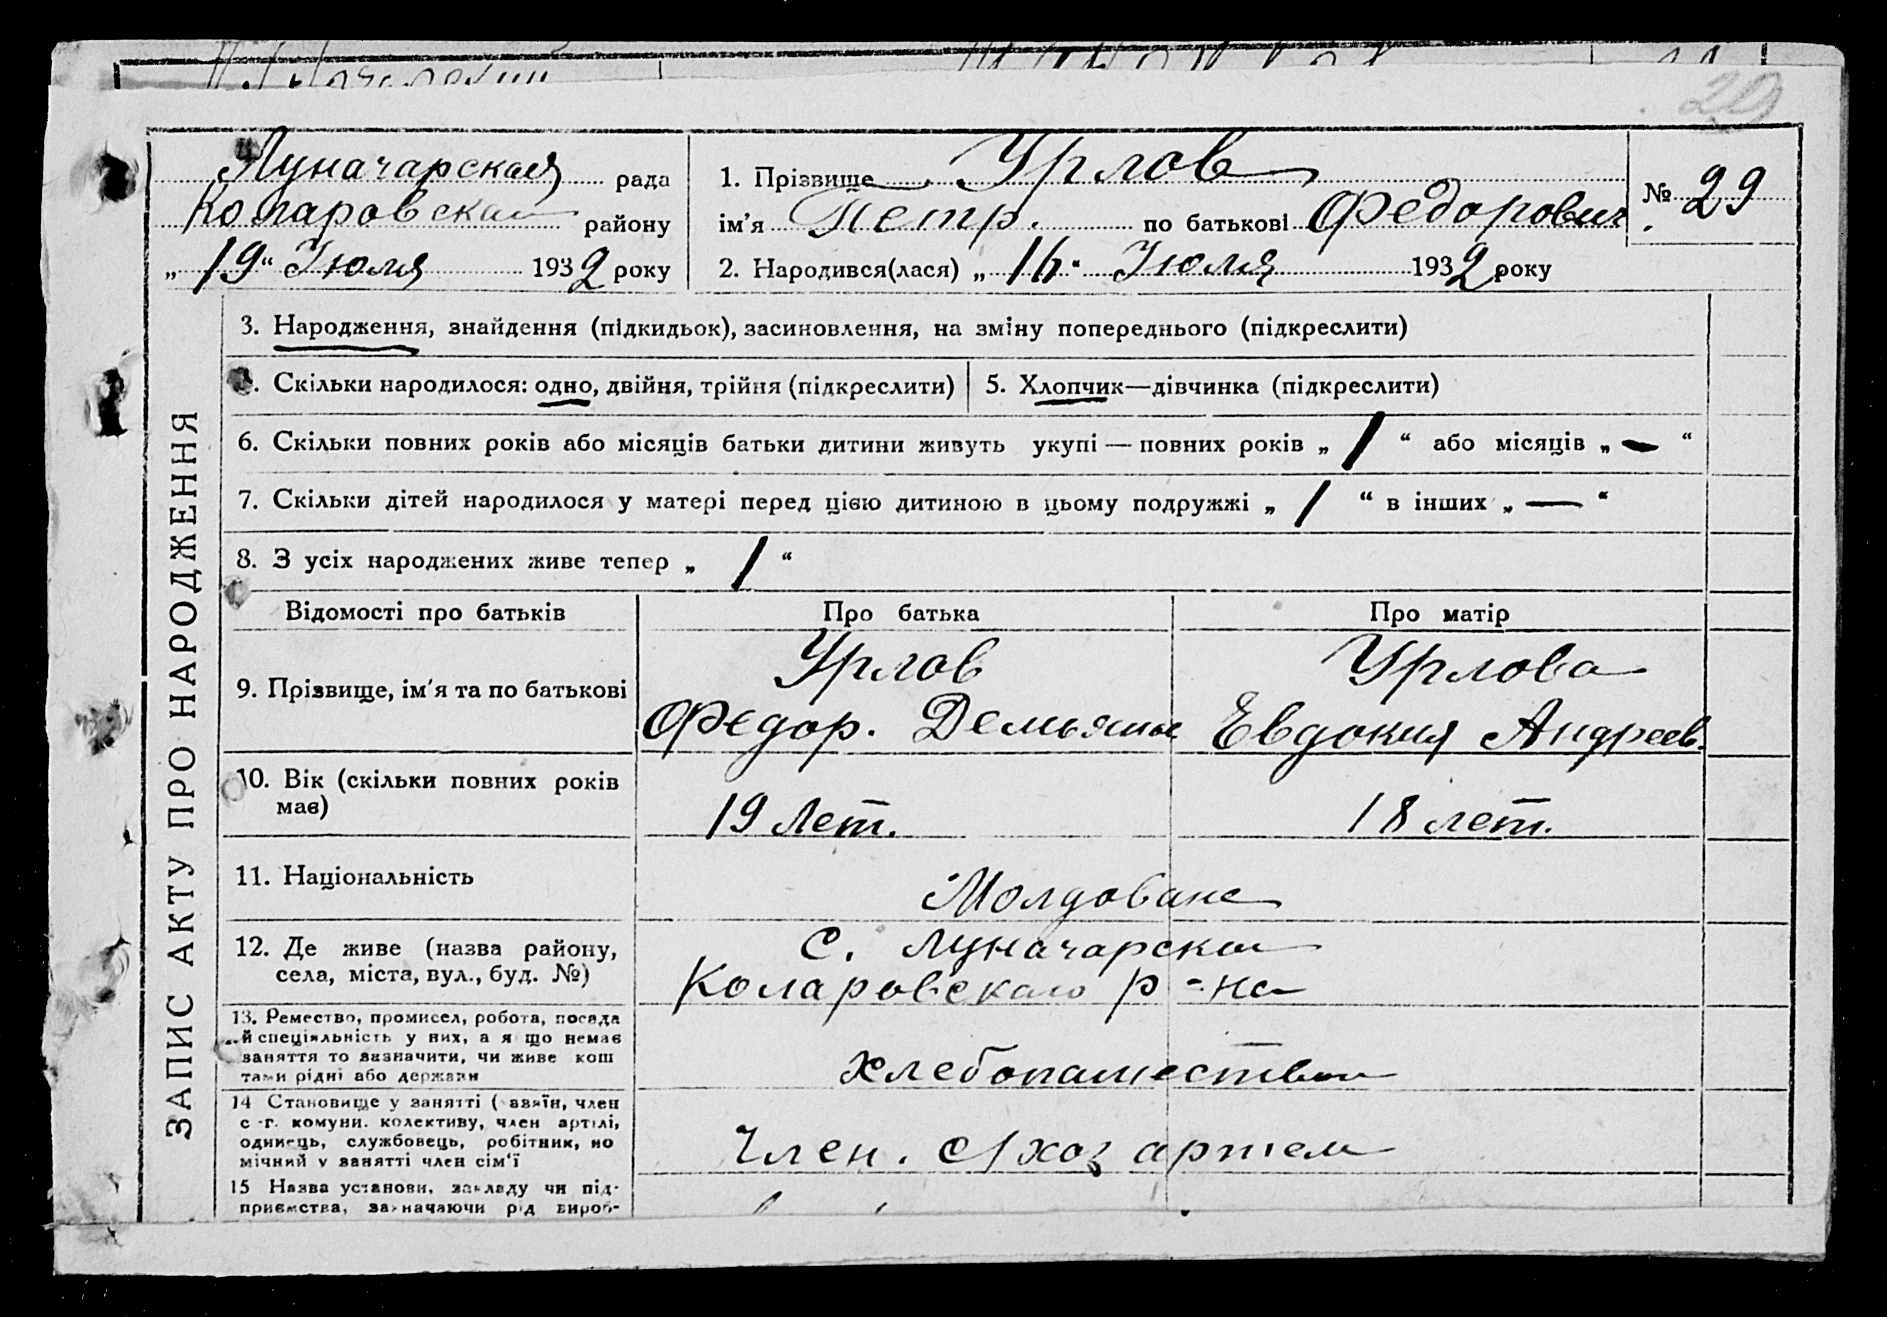 20
Луначарская рада
Коларовская району
„19“ Июля 1932 року
1. Прізвище Урлов
ім’я Петр. по батькові Федорович
№ 29
2. Народився(лася) „16“ Июля 1932 року
ЗАПИС АКТУ ПРО НАРОДЖЕННЯ
3. Народження, знайдення (підкидьок), засиновлення, на зміну попереднього (підкреслити)
. Скільки народилося: одно, двійня, трійня (підкреслити)
5. Хлопчик—дівчинка (підкреслити)
6. Скільки повних років або місяців батьки дитини живуть укупі — повних років „ 1 “ або місяців „ — “
7. Скільки дітей народилося у матері перед цією дитиною в цьому подружжі „ 1 “ в інших „ — “
8. З усіх народжених живе тепер „ 1 “
Відомості про батьків Про батька Про матір
9. Прізвище, ім’я та по батькові
Урлов
Федор. Демьянов
Урлова
Евдокия Андреев.
10. Вік (скільки повних років
має)
19 лет.
18 лет.
11. Національність
Молдоване
12. Де живе (назва району,
села, міста, вул., буд. №)
С. Луначарском
Коларовского р-на
13. Ремество, промисел, робота, посада
й спеціяльність у них, а я що немає
заняття то зазначити, чи живе кош
тами рідні або держави
хлебопашество
14 Становище у занятті (хазяїн, член
с-г. комуни. колективу, член артілі,
одинець, службовець, робітник, по
мічний у занятті член сім’ї
Член. с/хоз артели
15 Назва установи, закладу чи під-
приємства, зазначаючи рід вироб-